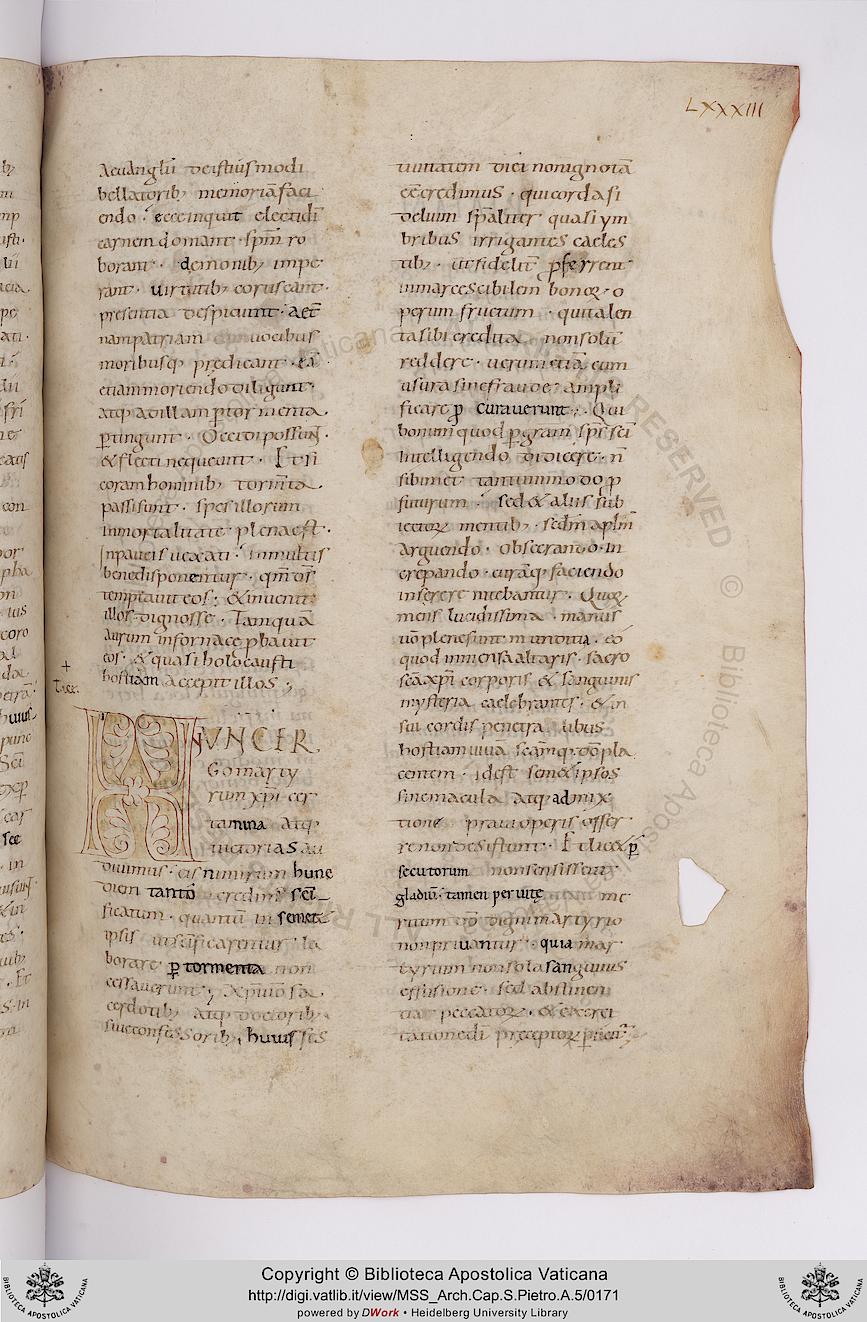 LXXXIII
Aeuangłii deistiusmodi
bellatorib; memoriā faci
endo : ecce inquit electi dī
carnem domant · spm̄ ro
borant · demonib; impe
rant · uirtutib; coruscant ·
presentia despiciunt · aet̄
nam patriam uocibus
moribusq; predicant · eā
etiam moriendo diligunt ·
atq; ad illam p̱ tormenta
p̱tingunt · Occidi possunt ·
& flecti nequeunt · Et si
coram hominib; torm̄ta
passi sunt · spes illorum
inmortalitate plena est ·
In paucis uexati · in multis
bene disponentur · qm̄ ds̄
temptauit eos · & inuenit
illos dignos se · Tamquā
aurum in fornace p̱bauit
eos · & quasi holocausti
hostiam accepit illos ;
NUNC ER
Go marty
rum xp̄i cer
tamina atq;
uictorias au
diuimus · eis nimirum hunc
diem tanto credim; sc̄i
ficatum · quantū in semet
ipsis ut sc̄ificarentur · la
borare p̱ tormenta non
cessauerunt ; Xp̄i uō sa
cerdotib; atq; doctorib;
siue confessorib; huius fes
tiuitatem diei non ignotā
eē credimus · qui corda si
delium sp̄aliter quasi ym
bribus irrigantes caeles
tib; · ut fidelit̄ p̱ferrent
inmarcescibilem bonoꝝ o
perum fructum · qui talen
ta sibi credita · non solū
reddere · uerum etiā cum
usura sine fraude ampli
ficare p̱curauerunt ; Qui
bonum quod p̱ gram̄ sp̄s sc̄i
Intelligendo didicere · n̄
sibimet tantummodo p̱
futurum · sed & aliis sub
iectoꝝ mentib; · scdm̄ aplm̄
Arguendo · obsecrando · in
crepando · curāq; faciendo
inserere nitebantur · Quoꝝ
mens lucidissima · manus
uō plene sunt munditia · eo
quod inmensa altaris · sacro
sc̄a xp̄i corporis & sanguinis
mysteria caelebrantes · & in
sui cordis penetralibus
hostiam uiuā sc̄amq; dō pla
centem · id est semet ipsos
sine macula atq; admix
tione praui operis offer
re non desistunt · Et licet p̱
secutorum non sensissent
gladiū · tamen per uitę me
ritum uō digni martyrio
non priuantur · quia mar
tyrum non sola sanguinis
effusione · sed abstinen
tia peccatoꝝ · & exerci
tatione dī preceptoꝝ p̱ficit̄
Copyright © Biblioteca Apostolica Vaticana
http://digi.vatlib.it/view/MSS_Arch.Cap.S.Pietro.A.5/0171
powered by DWork • Heidelberg University Library